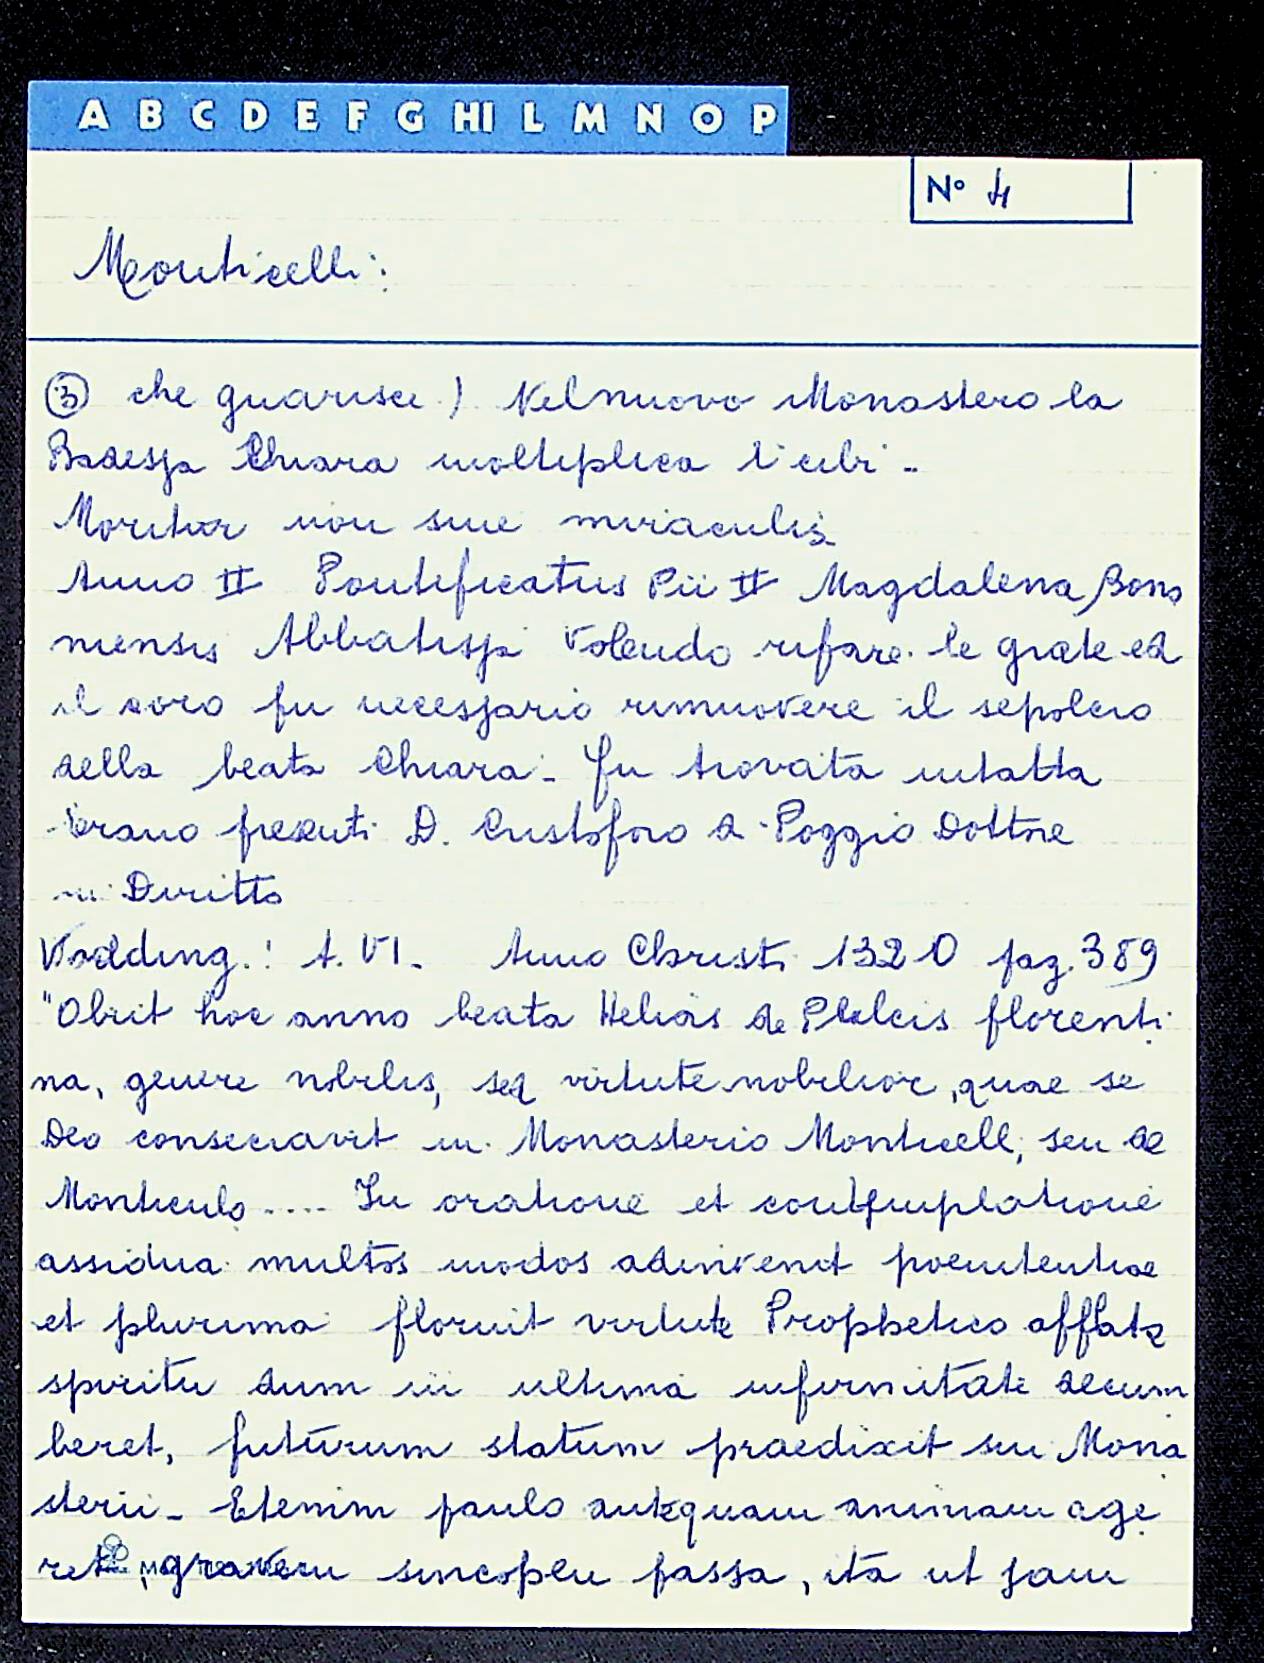 A B C D E F G HI L M N O P
N° 4
Monticelli:
③ che guarisce) Nel nuovo Monastero la
Badessa Chiara moltiplica i cibi -
Moritur non sine miraculis
Anno II Pontificatus Pii II Magdalena Bono
niensis Abbatissa Volendo rifare le grate ed
il coro fu necessario rimuovere il sepolcro
della beata Chiara - fu trovata intatta
Erano presenti D. Cristoforo a Poggio Dottore
in Diritto
Wadding.! t. VI. Anno Christi 1320 pag. 389
"Obiit hoc anno beata Helias de florenti
na, genere nobilis, sed virtute nobilior, quae se
Deo consecravit in Monasterio Monticell; seu de
Monticulo .... In oratione et contemplatione
assidua multos modos adinvenit poenitentiae
et plurima floruit virtute Prophetico afflata
spiritu dum in ultima infirmitate decum
beret, futurum statum praedixit sui Mona
sterii - Etenim paulo antequam animam age
ret, gravem sincopem passa, ita ut jam